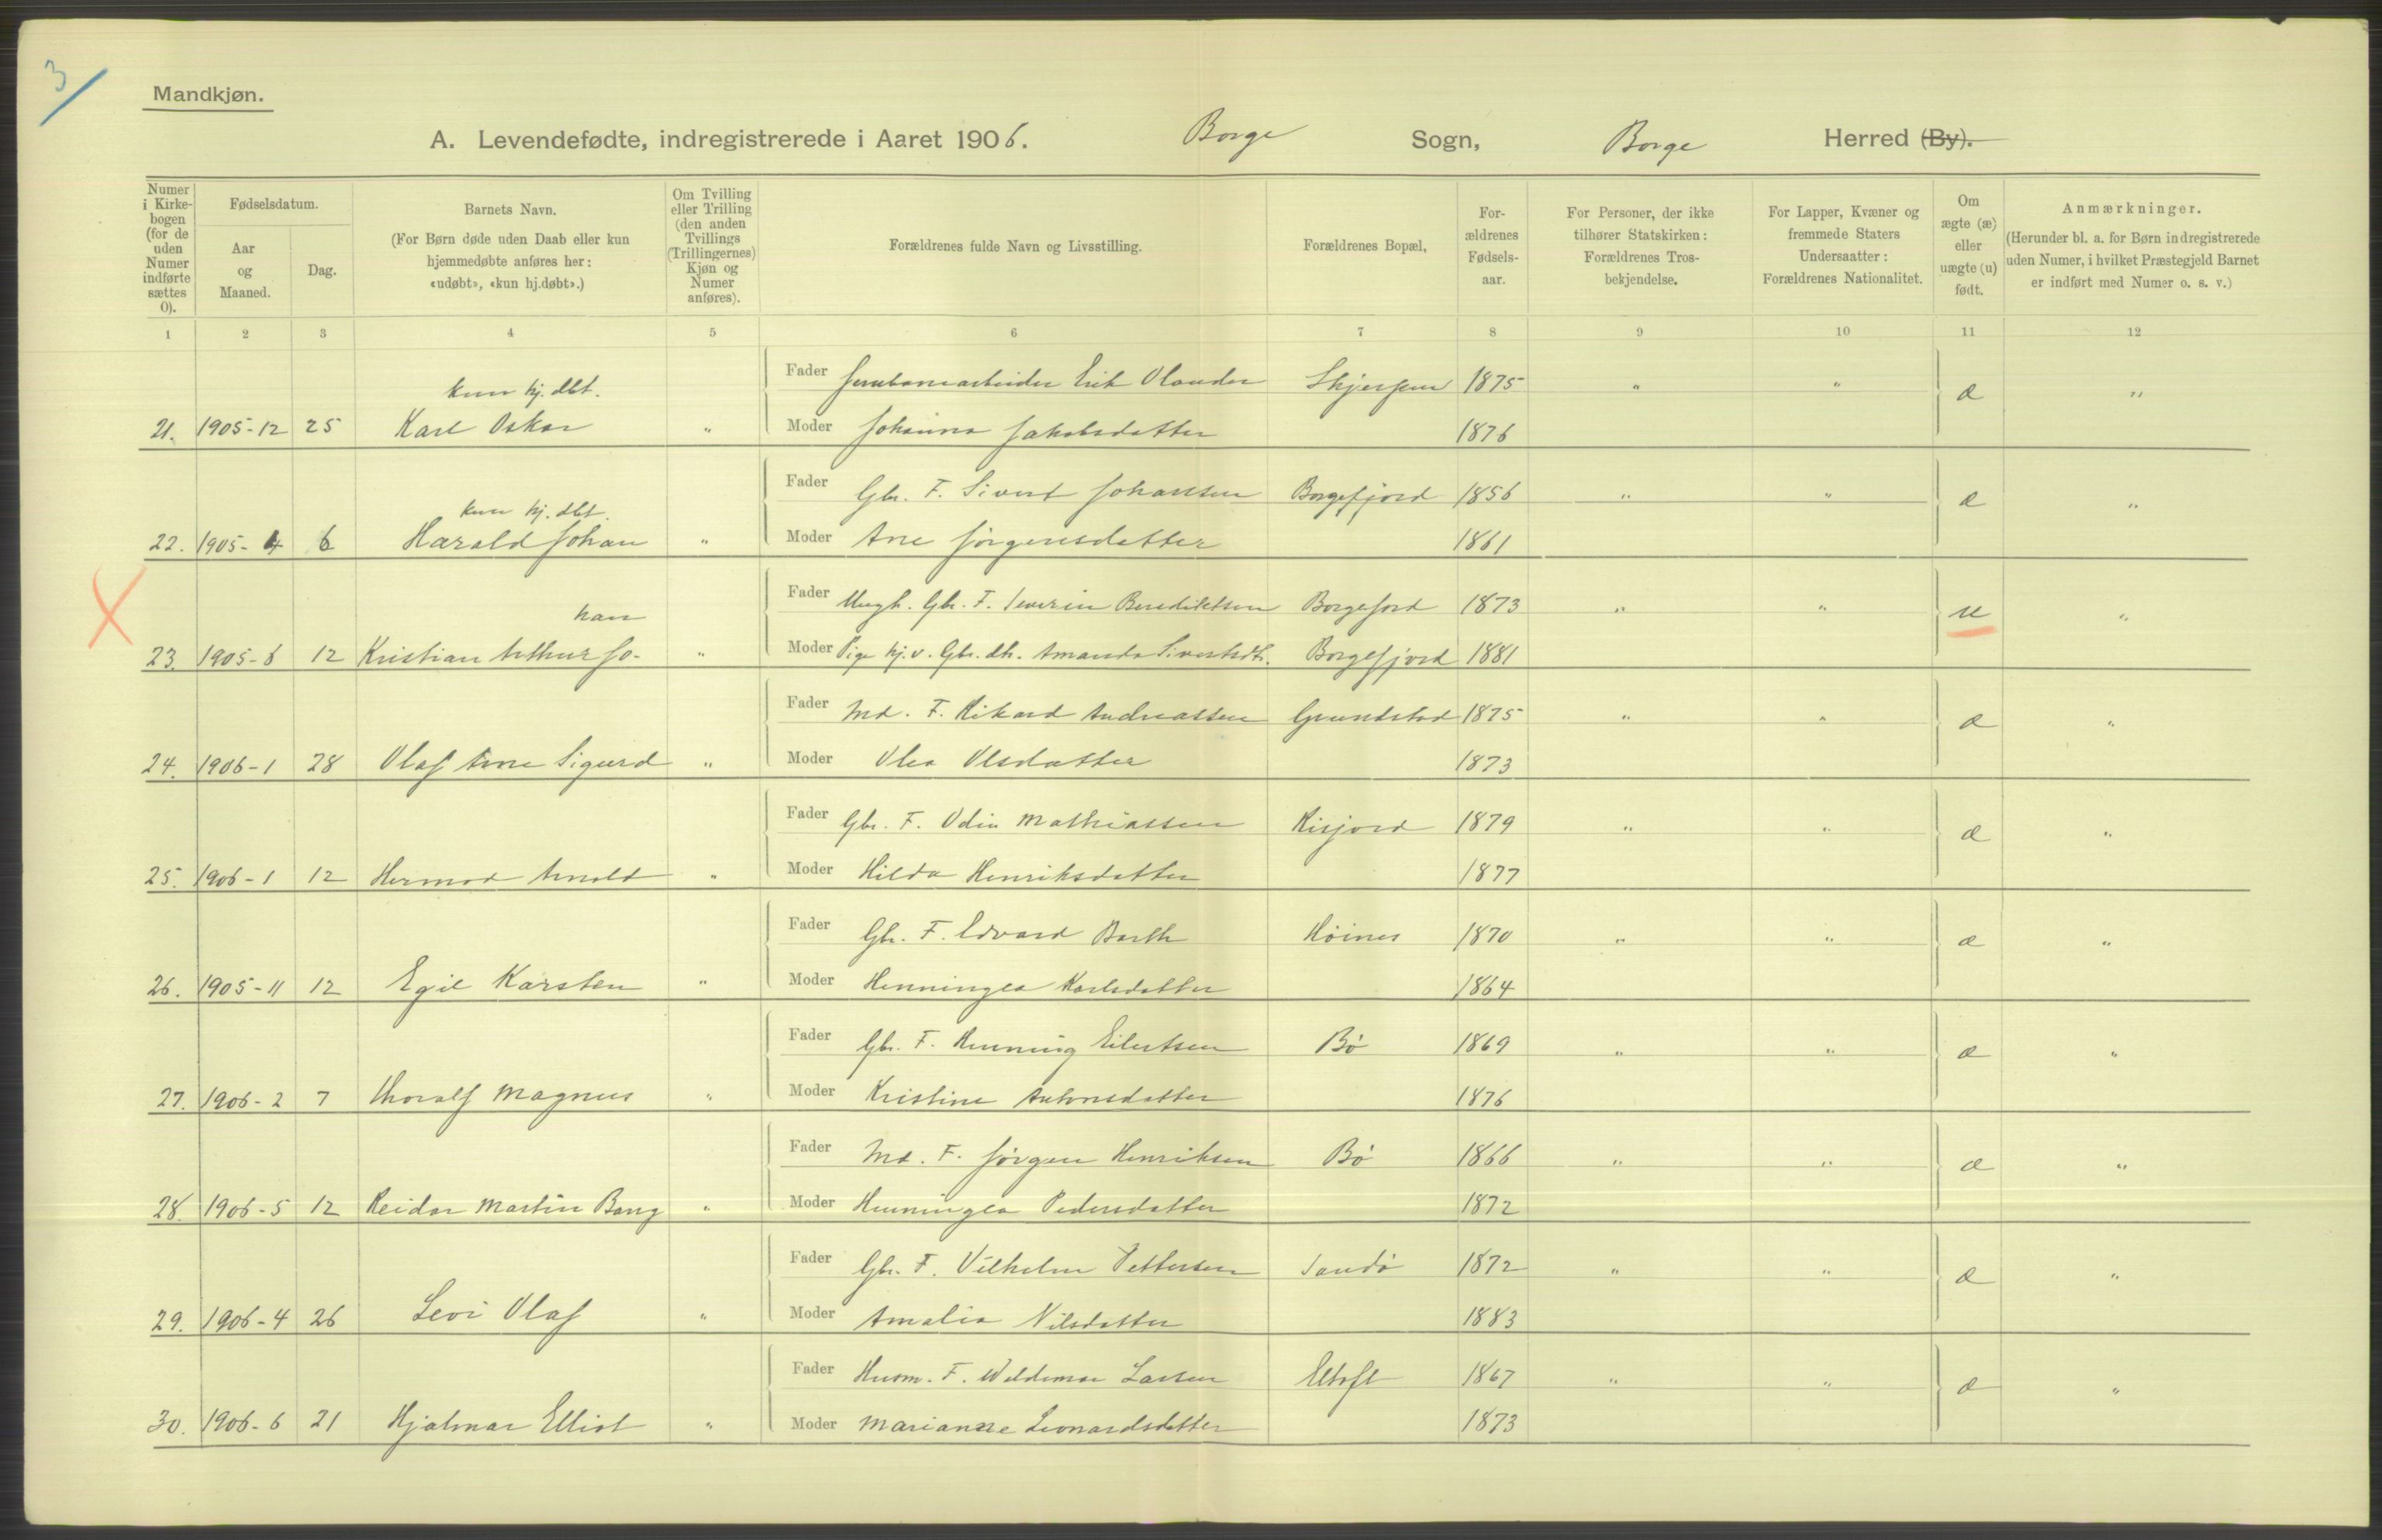 3
Mandkjøn.
A. Levendefødte, indregistrerede i Aaret 1906. Borge Sogn, Borge Herred (By).
Numer i Kirke-bogen (for de uden Numer indførte sættes 0).
Fødselsdatum.
Aar og Maaned.
Dag.
Barnets Navn.
(For Børn døde uden Daab eller kun hjemmedøbte anføres her: «udøbt», «kun hj.døbt».)
Om Tvilling eller Trilling (den anden Tvillings (Trillingernes) Kjøn og Numer anføres).
Forældrenes fulde Navn og Livsstilling.
Forældrenes Bopæl,
For-ældrenes Fødsels-aar.
For Personer, der ikke tilhører Statskirken: Forældrenes Tros-bekjendelse.
For Lapper, Kvæner og fremmede Staters Undersaatter: Forældrenes Nationalitet.
Om ægte (æ) eller uægte (u) født.
Anmærkninger.
(Herunder bl. a. for Børn indregistrerede uden Numer, i hvilket Præstegjeld Barnet er indført med Numer o. s. v.)
1 2 3 4 5 6 7 8 9 10 11 12
kun hj. dbt. Fader Jernbanearbeider Erik Olander 1875 " " æ "
21. 1905-12 25 Karl Oskar " Moder Johanna Jakobsdatter 1876
kun hj. dbt. Fader Gbr. F. Sivert Johansen Borgefjord 1856 " " æ "
22. 1905-4 6 Harald Johan " Moder Ane Jørgensdatter 1861
han Fader Ungk. Gbr. F. Severin Benediktsen Borgefjord 1873 " " u "
23. 1905-6 12 Kristian Arthur Jo- " Moder Pige hj. v. Gbr. dtr. Amanda Sivertsdtr. Borgefjord 1881
Fader Md. F. Rikard Andreassen Grundstad 1875 " " æ "
24. 1906-1 28 Olaf Arne Sigurd " Moder Olea Olsdatter 1873
Fader Gbr. F. Odin Mathiassen Risjord 1879 " " æ "
25. 1906-1 12 Hermod Arnold " Moder Hilda Henriksdatter 1877
Fader Gbr. F. Edvard Barth Høines 1870 " " æ "
26. 1905-11 12 Egil Karsten " Moder Henningea Karlsdatter 1864
Fader Gbr. F. Henning Eilertsen Bø 1869 " " æ "
27. 1906-2 7 Thoralf Magnus " Moder Kristine Antonsdatter 1876
Fader Md. F. Jørgen Henriksen Bø 1866 " " æ "
28. 1906-5 12 Reidar Martin Bang " Moder Henningea Pedersdatter 1872
Fader Gbr. F. Vilhelm Pettersen Sandø 1872 " " æ "
29. 1906-4 26 Levi Olaf " Moder Amalia Nilsdatter 1883
Fader Husm. F. Waldemar Larsen Eltoft 1867 " " æ "
30. 1906-6 21 Hjalmar Elliot " Moder Marianne Leonardsdatter 1873